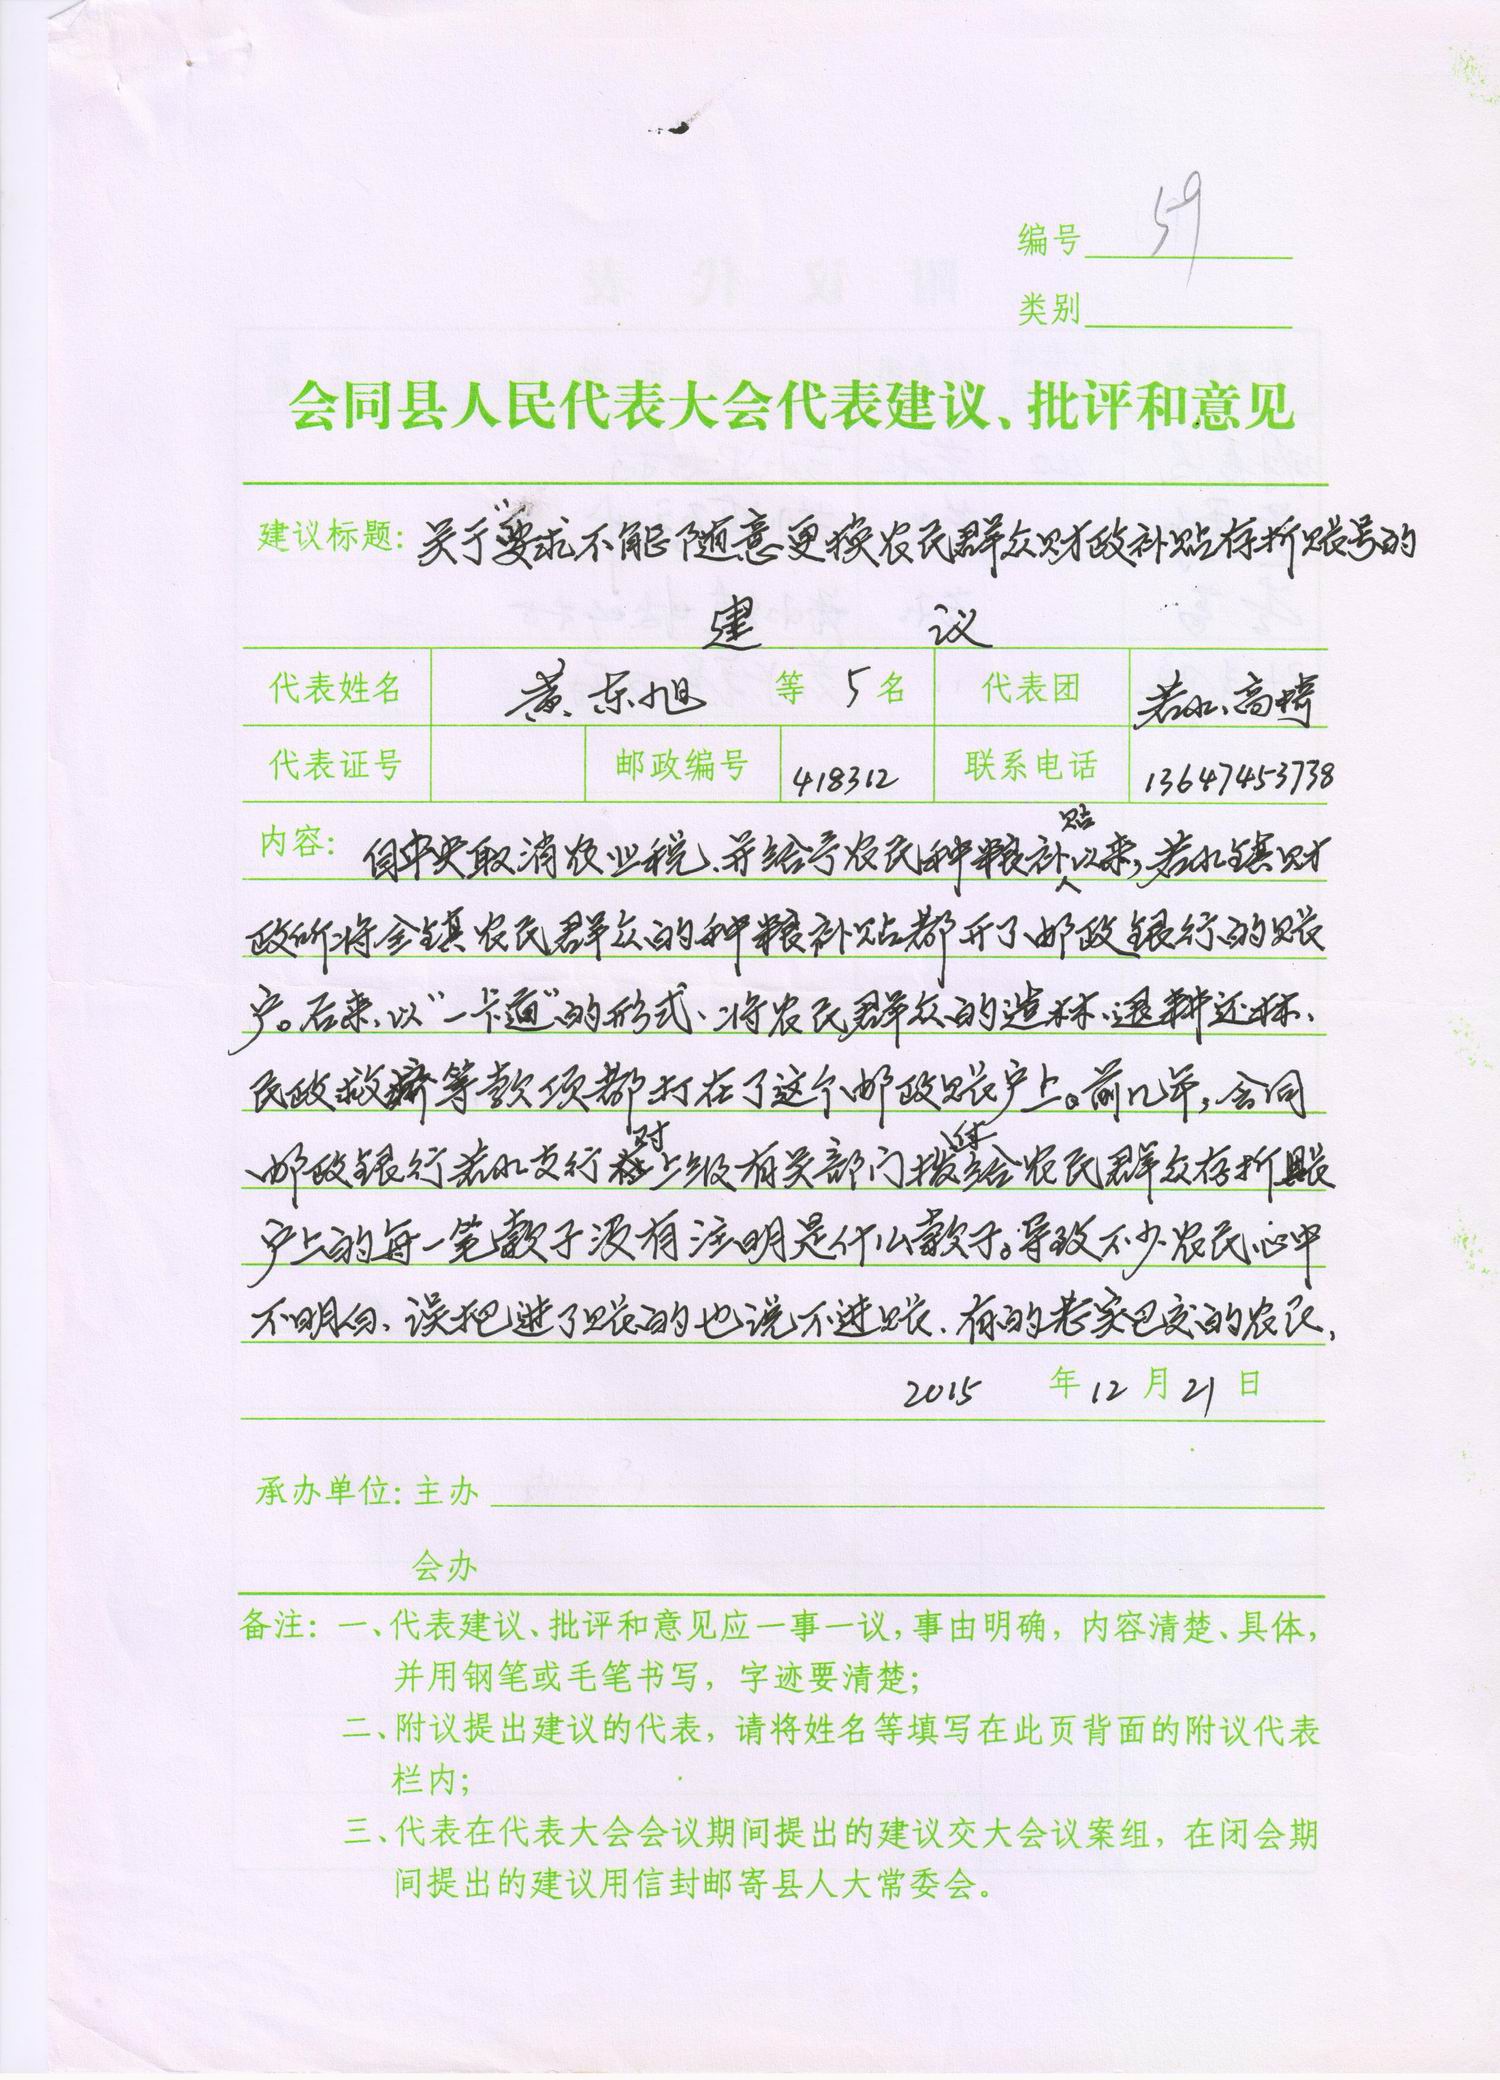 编号 59
类别
会同县人民代表大会代表建议、批评和意见
建议标题: 关于"要求不能随意更换农民群众财政补贴存折账号的
建 议
代表姓名 黄东旭 等 5 名 代表团 若水、高椅
代表证号 邮政编号 418312 联系电话 13647453738
内容: 自中央取消农业税、并给予农民种粮补贴以来,若水镇财
政所将全镇农民群众的种粮补贴都开了邮政银行的账
户。后来、以"一卡通"的形式、将农民群众的造林、退耕还林、
民政救济等款项都打在了这个邮政账户上。前几年,会同
邮政银行若水支行对上级有关部门拨给农民群众存折账
户上的每一笔款子没有注明是什么款子。导致不少农民心中
不明白、误把进了账的也说不进账、有的老实巴交的农民,
2015 年 12 月 21 日
承办单位: 主办
会办
备注: 一、代表建议、批评和意见应一事一议,事由明确,内容清楚、具体,
并用钢笔或毛笔书写,字迹要清楚;
二、附议提出建议的代表,请将姓名等填写在此页背面的附议代表
栏内;
三、代表在代表大会会议期间提出的建议交大会议案组,在闭会期
间提出的建议用信封邮寄县人大常委会。